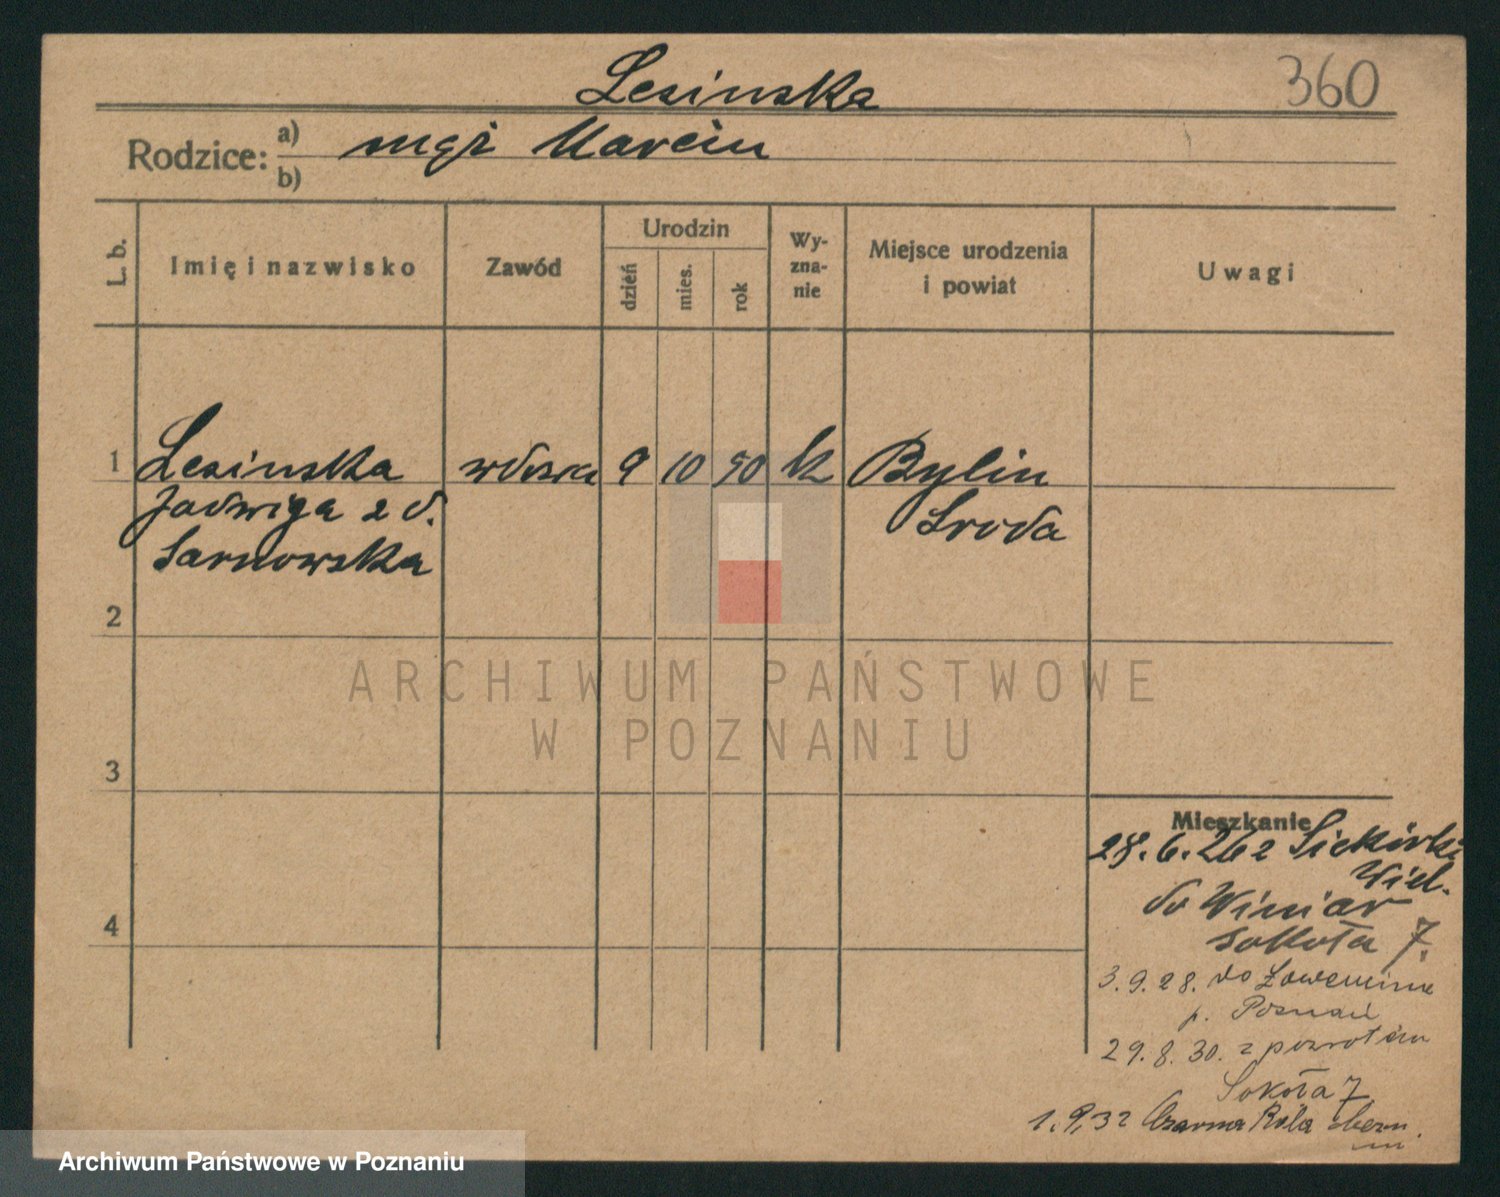 Lesinska
360
Rodzice: a) mąż Marcin
b)
L. b.
Imię i nazwisko
Zawód
Urodzin
dzień
mies.
rok
Wy-
zna-
nie
Miejsce urodzenia
i powiat
Uwagi
1 Lesinska wdowa 9 10 90 k Bylin
Jadwiga z d. Sroda
Sarnowska
2
3
4
ARCHIWUM PAŃSTWOWE
W POZNANIU
Mieszkanie
28.6.26 z Siekierki
Wiel.
do Winiar
Sokoła 7.
3.9.28. do
p. Poznań
29.8.30. z powrotem
Sokoła 7
1.9.32 Czarna Rola
Archiwum Państwowe w Poznaniu